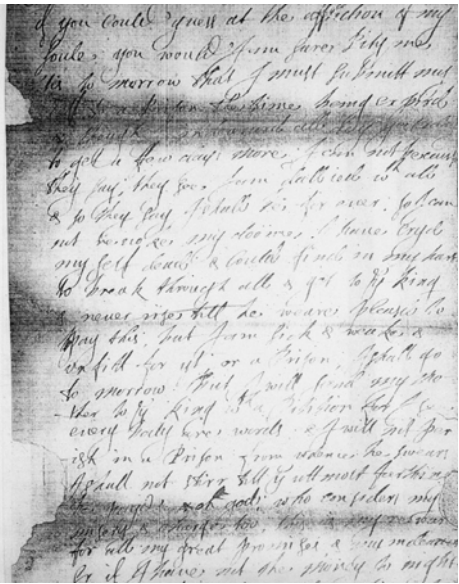 if you could guess at the affliction of my
soule you would I am sure Pity me
tis to morrow that I must submitt my
self to a Prison the time being expird
& though I indeavord all day yesterday
to get a few days more I can not because
they say they see I am dallied wth all
& so they say I shall see for ever: so I can
not revoke my doome I have cryd
my self dead & could find in my hart
to break through all & get to ye king
& never rise till he weare pleasd to
pay this; but I am sick & weake &
unfitt for yt or a Prison; I shall go
to morrow: But I will send my mo
ther to ye king wth a Pitition for I see
every body are words: & I will not per
ish in a Prison from whence he swears
I shall not stirr till ye uttmost farthing
be payd: & oh god, who considers my
misery & charge too, this is my reward
for all my great promises & my indeavors
Sr if I have not the money to night